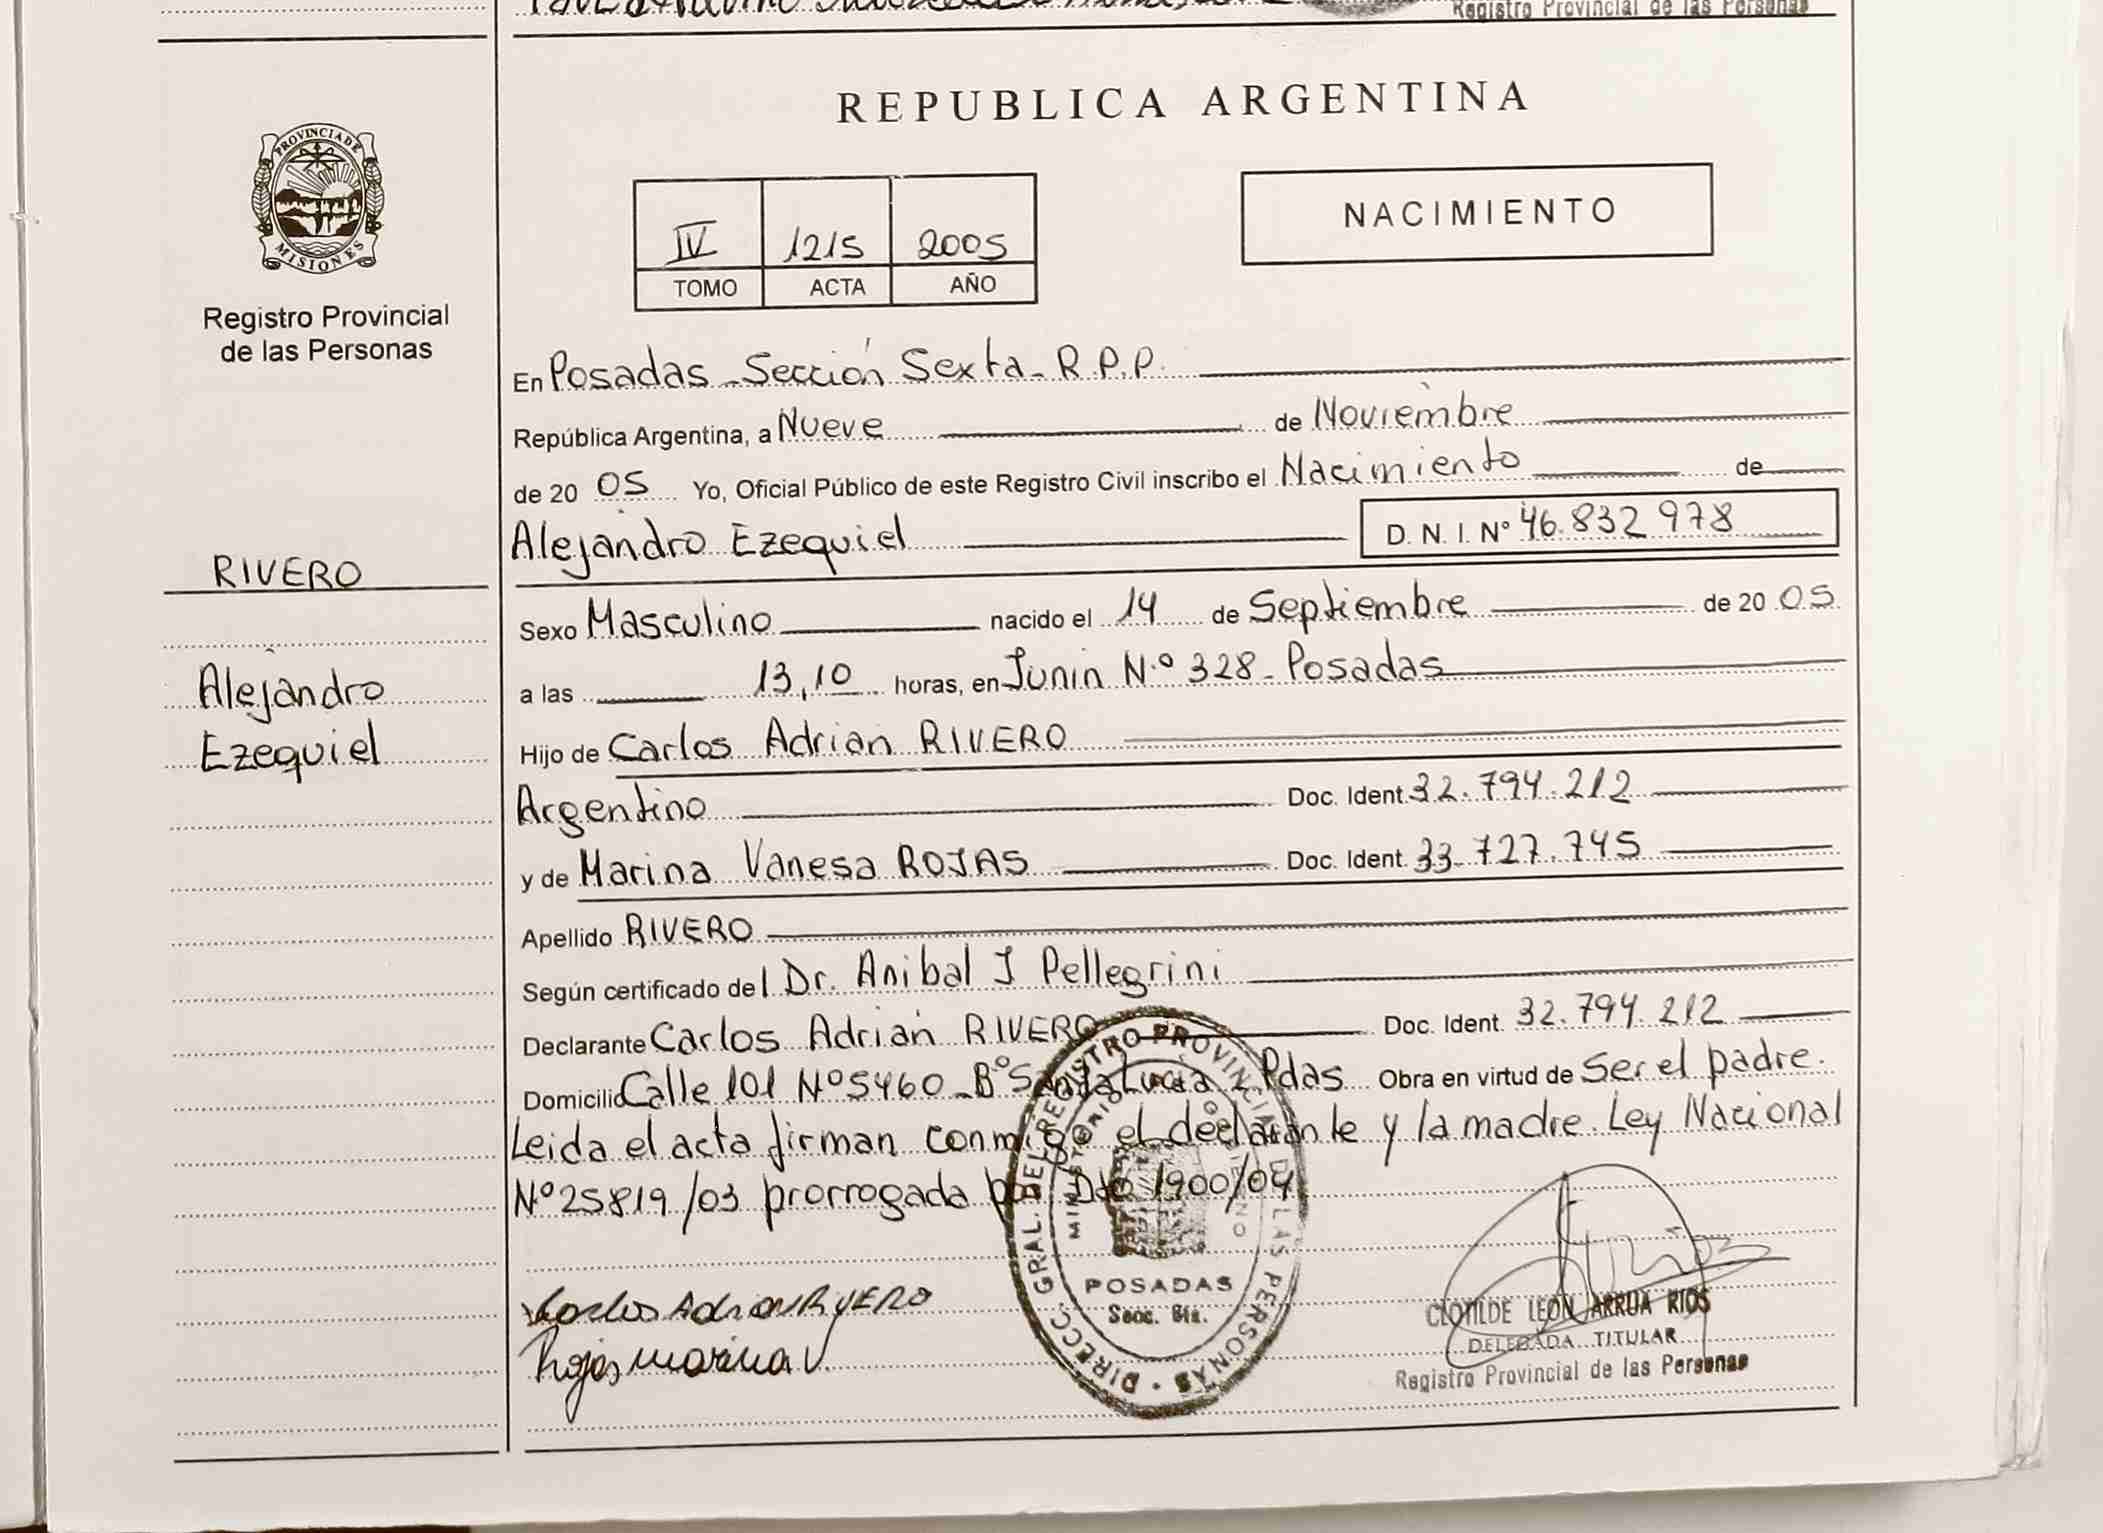 Registro Provincial de las Personas
PROVINCIA DE
MISIONES
Registro Provincial
de las Personas
RIVERO
Alejandro
Ezequiel
REPUBLICA ARGENTINA
IV 1215 2005
TOMO ACTA AÑO
NACIMIENTO
En Posadas - Sección Sexta - R.P.P.
República Argentina, a Nueve de Noviembre
de 20 05 Yo, Oficial Público de este Registro Civil inscribo el Nacimiento de
Alejandro Ezequiel D. N. I. Nº 46.832 978
Sexo Masculino nacido el 14 de Septiembre de 20 05
a las 13,10 horas, en Junin N.º 328 - Posadas
Hijo de Carlos Adrian RIVERO
Argentino Doc. Ident. 32.794.212
y de Marina Vanesa ROJAS Doc. Ident. 33.727.745
Apellido RIVERO
Según certificado del Dr. Anibal J Pellegrini
Declarante Carlos Adrian RIVERO Doc. Ident. 32.794.212
Domicilio Calle 101 Nº 5460 - Bº Santa Lucia - Pdas Obra en virtud de Ser el padre.
Leida el acta firman conmigo el declarante y la madre. Ley Nacional
Nº 25819/03 prorrogada por Dto 1900/04
Carlos Adrian RIVERO
Rojas Marina V.
DIRECC. GRAL. DEL REGISTRO PROVINCIAL DE LAS PERSONAS
MINISTERIO DE GOBIERNO
POSADAS
Secc. 6ta.
CLOTILDE LEON ARRUA RIOS
DELEGADA TITULAR
Registro Provincial de las Personas